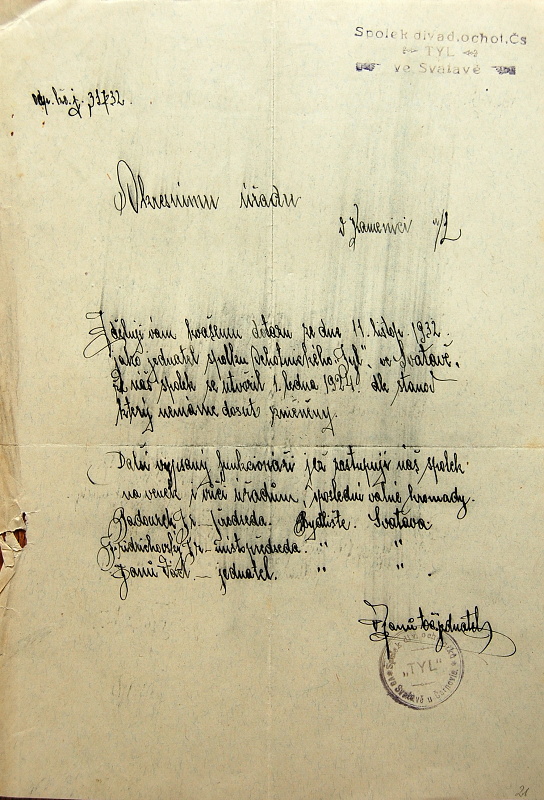 Spolek divad.ochot.Čs
TYL
ve Svatavě
Okresnímu úřadu
v Kamenici n/L
Sděluji vám k vašemu dotazu ze dne 11. listop. 1932.
jako jednatel spolku ochotnického „Tyl“ ve Svatavě,
že náš spolek se utvořil 1. ledna 1924. dle stanov
který nemáme dosut změněny.
Další vypsaný funkcionáři jež zastupují náš spolek
na venek i vůči úřadům, poslední valné hromady.
Fr. předseda. Bydliště. Svatava
Fr. – místopředseda. " "
Janů – jednatel. " "
Janů jednatel
Spolek div. ochotníků
„TYL“
ve Svatavě u Černovic
21